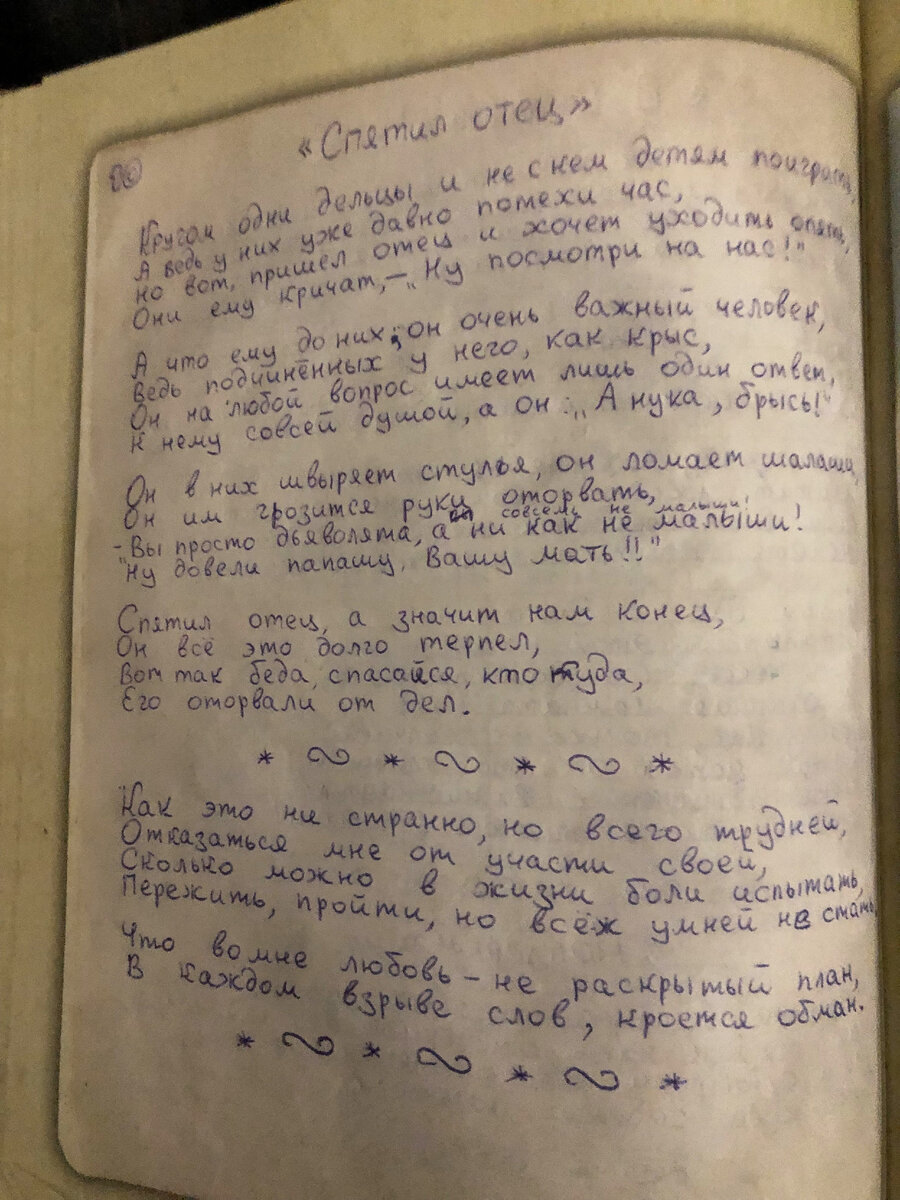 «Спятил отец»
Кругом одни дельцы, и не с кем детям поиграть,
А ведь у них уже давно потехи час,
Но вот, пришёл отец и хочет уходить опять,
Они ему кричат, – „Ну посмотри на нас!"
А что ему до них; он очень важный человек,
Ведь подчинённых у него, как крыс,
Он на любой вопрос имеет лишь один ответ,
К нему совсей душой, а он: „А нука, брысь!"
Он в них швыряет стулья, он ломает шалаши,
Он им грозится руки оторвать,
совсем не малыши!
- Вы просто дьяволята, а ни как не малыши!
"Ну довели папашу, Вашу мать!!"
Спятил отец, а значит нам конец,
Он всё это долго терпел,
Вот так беда, спасайся, кто туда,
Его оторвали от дел.
Как это ни странно, но всего трудней,
Отказаться мне от участи своей,
Сколько можно в жизни боли испытать,
Пережить, пройти, но всёж умней не стать,
Что во мне любовь – не раскрытый план,
В каждом взрыве слов, кроется обман.